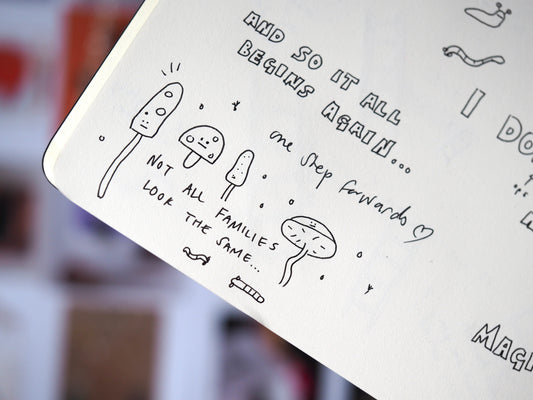 AND SO IT ALL
BEGINS AGAIN...
one step forwards ♡
NOT ALL FAMILIES
LOOK THE SAME...
I DO
MAGI